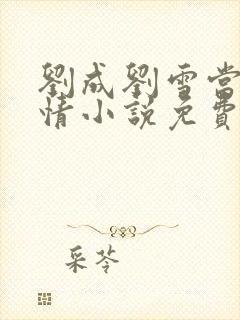 劉成劉雪當
情小說免費
采苓